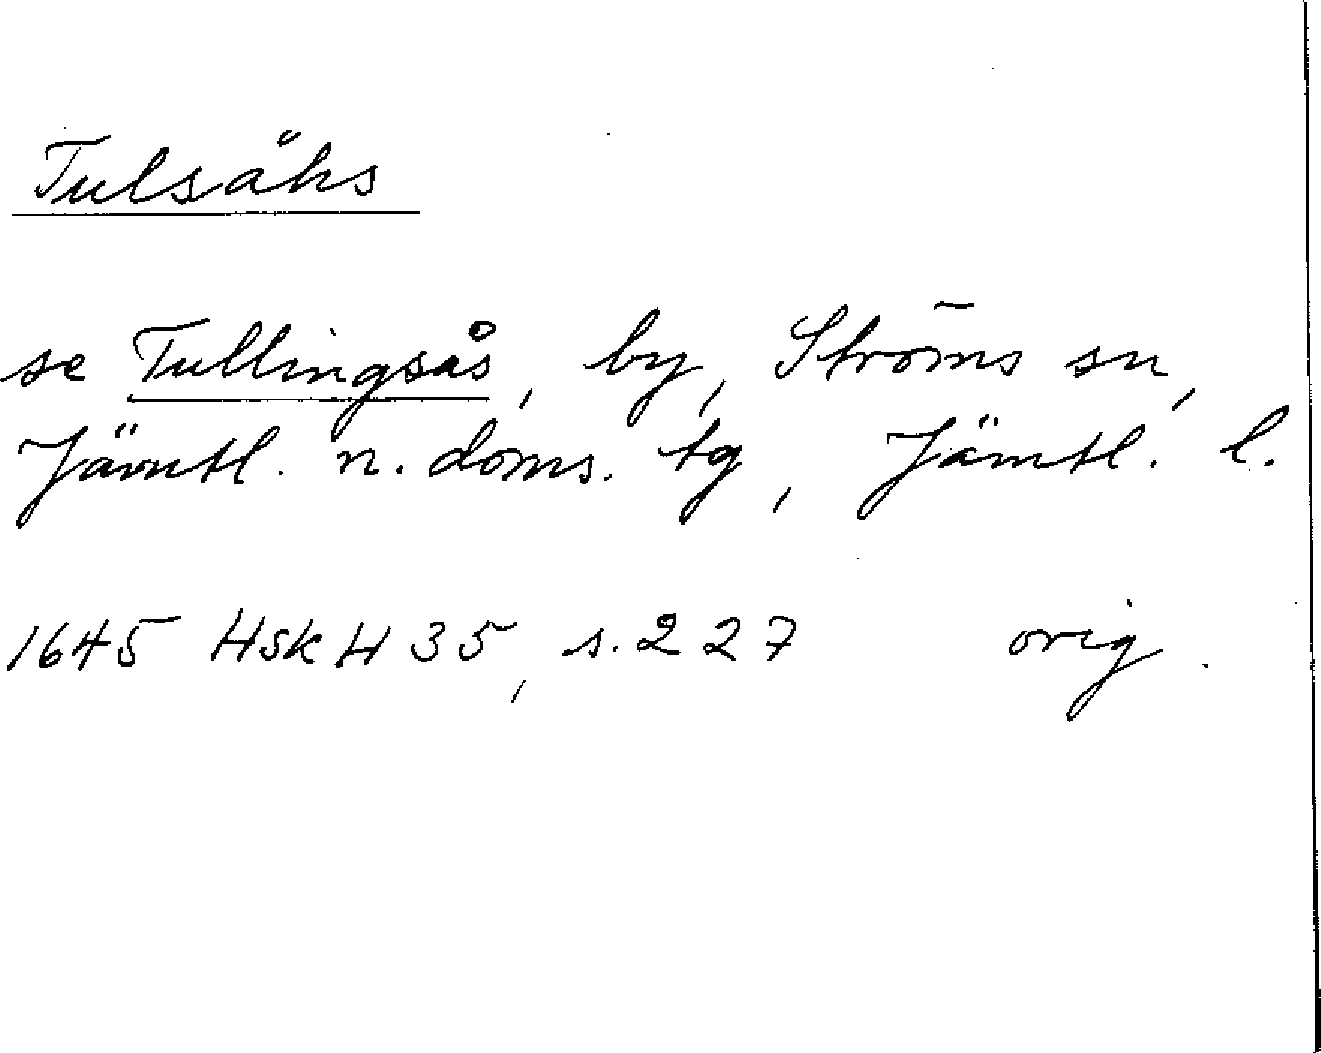 Tulsåhs
se Tullingsås, by, Ströms sn,
Jämtl. n. doms. tg, Jämtl. l.
1645 HskH 35, s. 227 orig.